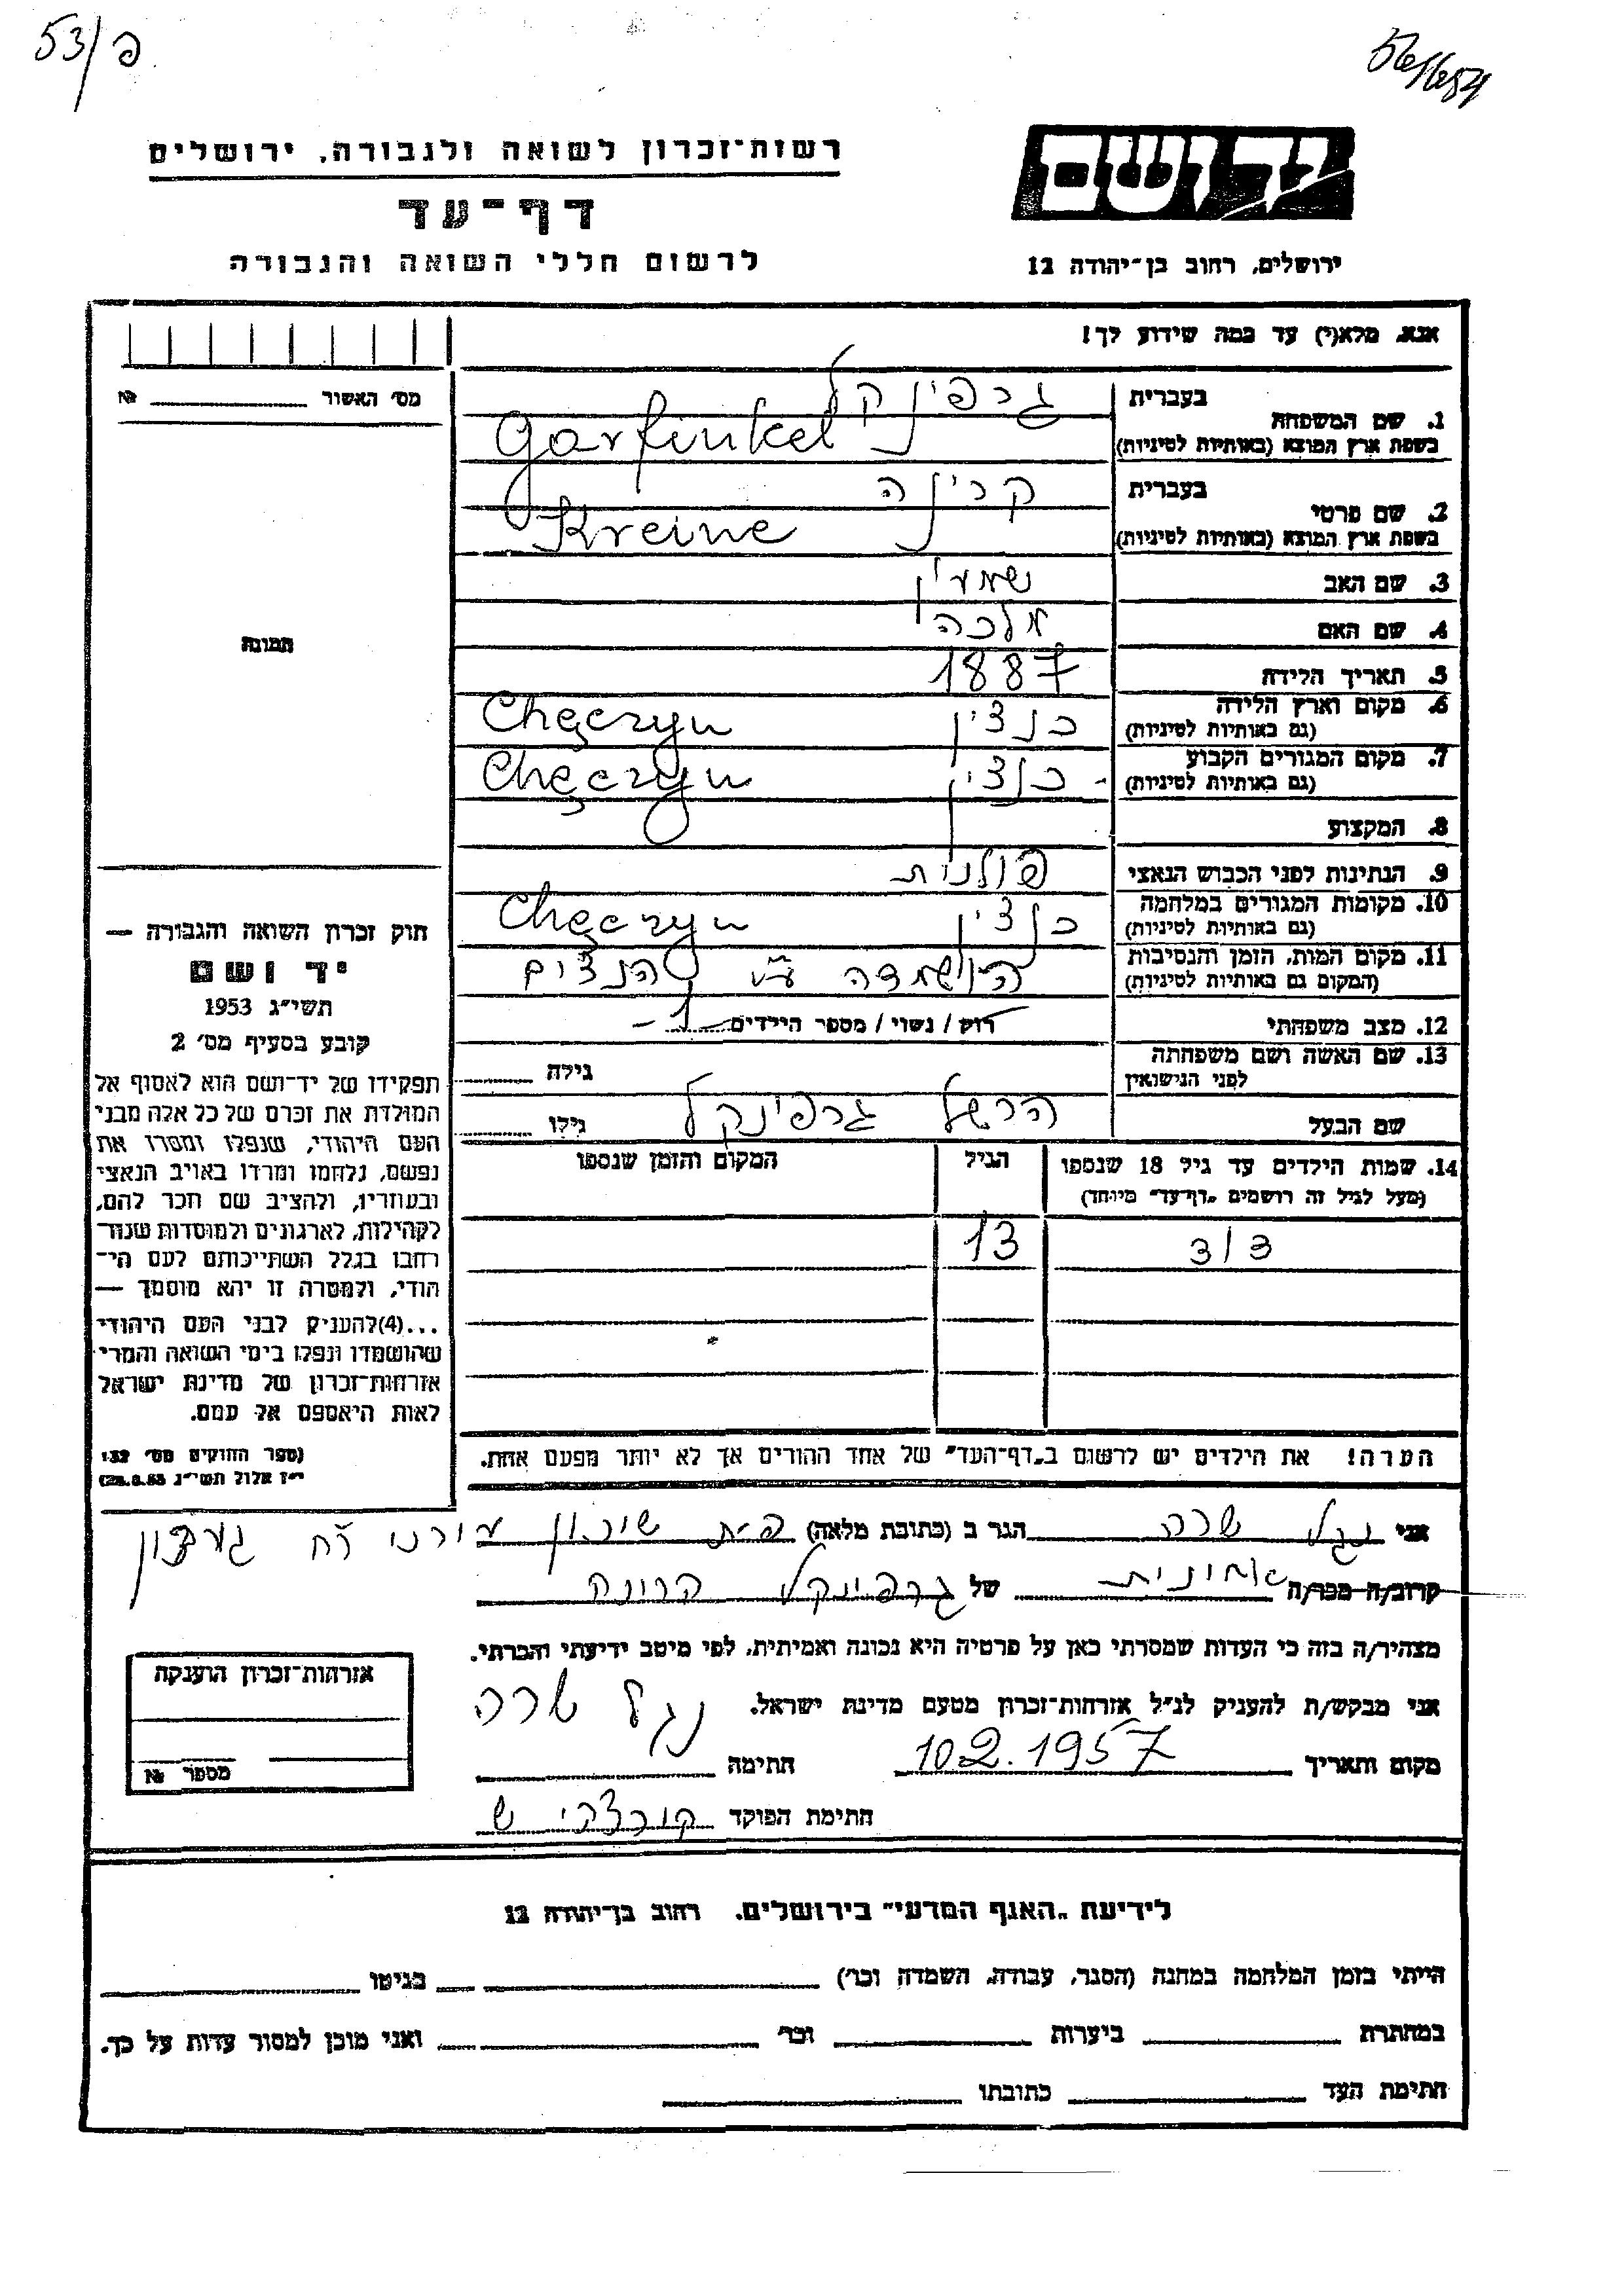 53/פ
רשות־זכרון לשואה ולגבורה, ירושלים
יד ושם
דף־עד
לרשום חללי השואה והגבורה
ירושלים, רחוב בן־יהודה 12
אנא, מלא(י) עד כמה שידוע לך!
מס׳ האשור № 
1. שם המשפחה
בעברית גרפינקל
בשפת ארץ המוצא (באותיות לטיניות) Garfinkel
2. שם פרטי
בעברית קרינה
בשפת ארץ המוצא (באותיות לטיניות) Kreine
3. שם האב שמעון
4. שם האם מלכה
תמונה
5. תאריך הלידה 1887
6. מקום וארץ הלידה (גם באותיות לטיניות) כנצין Chęczyn
7. מקום המגורים הקבוע (גם באותיות לטיניות) כנצין Chęczyn
8. המקצוע
9. הנתינות לפני הכבוש הנאצי פולנית
10. מקומות המגורים במלחמה (גם באותיות לטיניות) כנצין Chęczyn
11. מקום המות, הזמן והנסיבות (המקום גם באותיות לטיניות) הושמדה ע״י הנצים
12. מצב משפחתי רוק / נשוי / מספר הילדים -1-
13. שם האשה ושם משפחתה לפני הנישואין גילה
שם הבעל הרשל גרפינקל גילו
14. שמות הילדים עד גיל 18 שנספו הגיל המקום והזמן שנספו
(מעל לגיל זה רושמים „דף־עד״ מיוחד)
דוד 13
הערה! את הילדים יש לרשום ב„דף־העד״ של אחד ההורים אך לא יותר מפעם אחת.
חוק זכרון השואה והגבורה —
יד ושם
תשי״ג 1953
קובע בסעיף מס׳ 2
תפקידו של יד־ושם הוא לאסוף אל
המולדת את זכרם של כל אלה מבני
העם היהודי, שנפלו ומסרו את
נפשם, נלחמו ומרדו באויב הנאצי
ובעוזריו, ולהציב שם וזכר להם,
לקהילות, לארגונים ולמוסדות שנח־
רבו בגלל השתייכותם לעם הי־
הודי, ולמטרה זו יהא מוסמך —
...(4)להעניק לבני העם היהודי
שהושמדו ונפלו בימי השואה והמרי
אזרחות־זכרון של מדינת ישראל
לאות היאספם אל עמם.
(ספר החוקים מס׳ 132
י״ז אלול תשי״ג 28.8.53)
אני נגל שרה הגר ב (כתובת מלאה) פ״ת שיכון
קרוב/ה מכר/ה אחינית של גרפינקל קרינה
מצהיר/ה בזה כי העדות שמסרתי כאן על פרטיה היא נכונה ואמיתית, לפי מיטב ידיעתי והכרתי.
אני מבקש/ת להעניק לנ״ל אזרחות־זכרון מטעם מדינת ישראל.
מקום ותאריך 10.2.1957 חתימה נגל שרה
חתימת הפוקד
אזרחות־זכרון הוענקה
מספר №
לידיעת „האגף המדעי״ בירושלים, רחוב בן־יהודה 12
הייתי בזמן המלחמה במחנה (הסגר, עבודה, השמדה וכו׳) בגיטו
במחתרת ביערות וכו׳ ואני מוכן למסור עדות על כך.
חתימת העד כתובתו